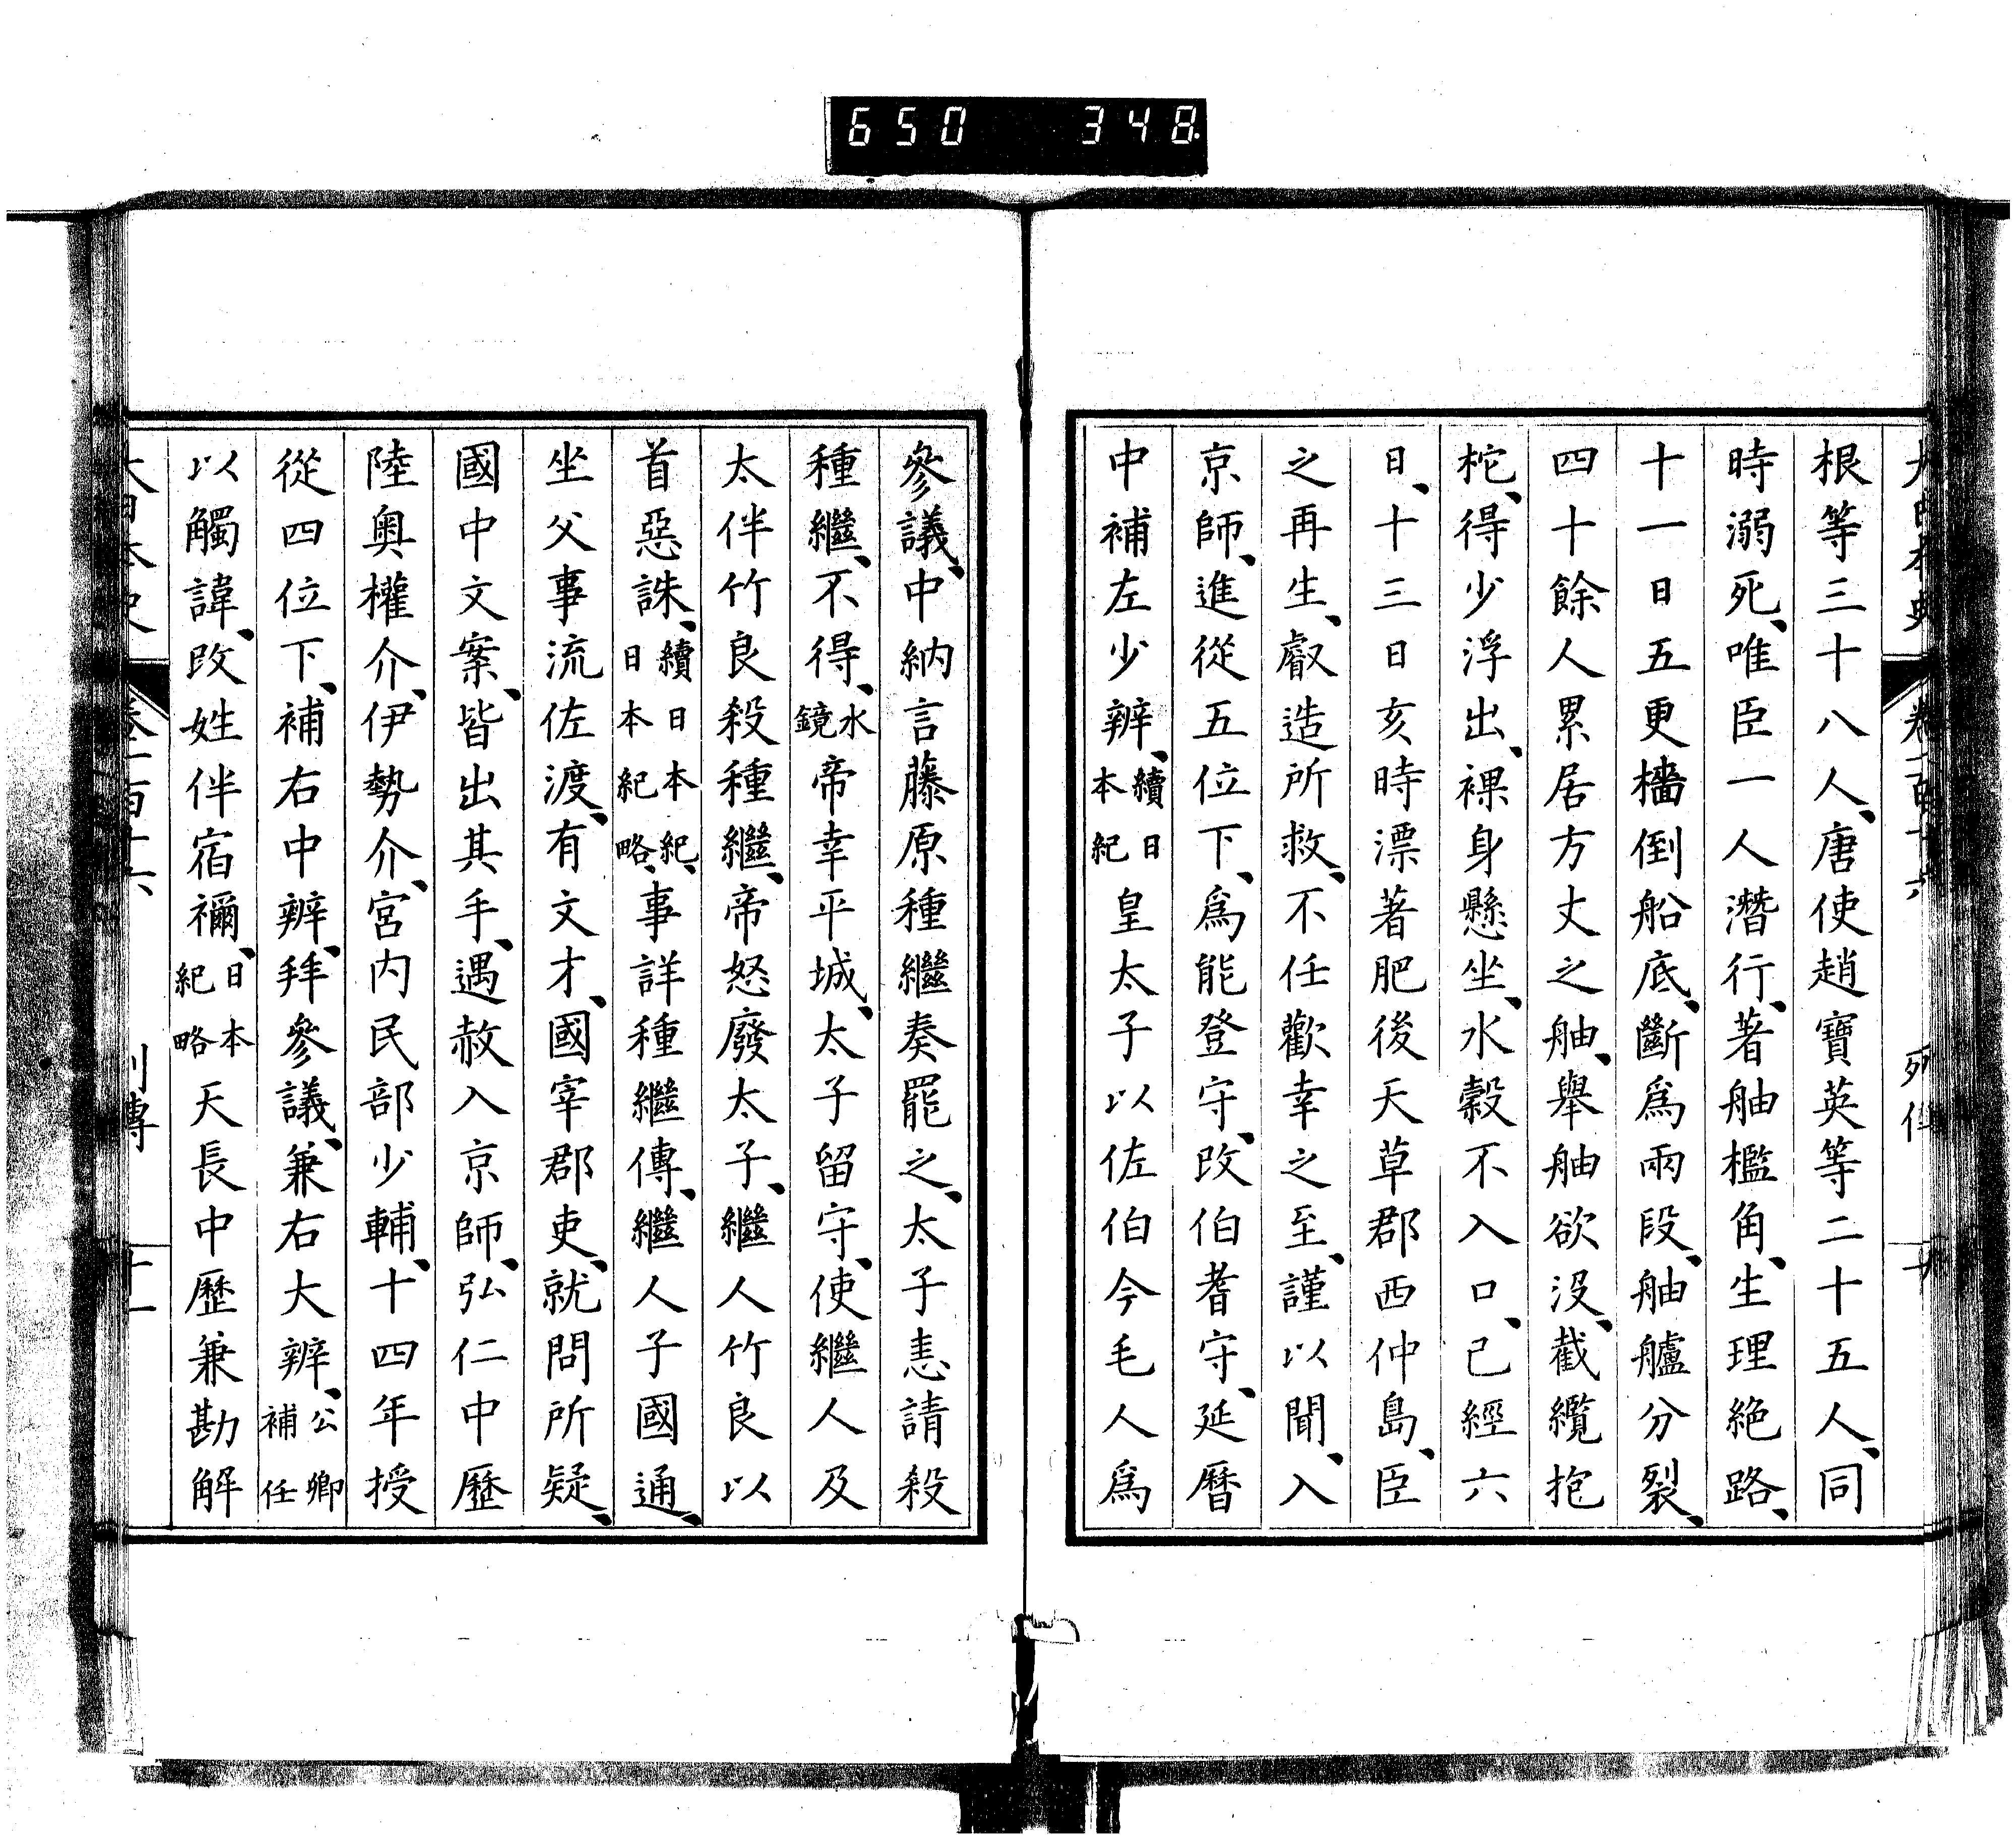 650 348
根等三十八人、唐使趙寶英等二十五人、同
時溺死、唯臣一人潛行、著舳檻角、生理絶路、
十一日五更檣倒船底、斷爲兩段、舳艫分裂、
四十餘人累居方丈之舳、舉舳欲沒、截纜抱
柁、得少浮出、裸身懸坐、水穀不入口、已經六
日、十三日亥時漂著肥後天草郡西仲島、臣
之再生、叡造所救、不任歡幸之至、謹以聞、入
京師、進從五位下、爲能登守、改伯耆守、延曆
中補左少辨、續日本紀皇太子以佐伯今毛人爲
參議、中納言藤原種繼奏罷之、太子恚請殺
種繼、不得、水鏡帝幸平城、太子留守、使繼人及
太伴竹良殺種繼、帝怒廢太子、繼人竹良以
首惡誅、續日本紀、日本紀略、事詳種繼傳、繼人子國通、
坐父事流佐渡、有文才、國宰郡吏、就問所疑、
國中文案、皆出其手、遇赦入京師、弘仁中歷
陸奧權介、伊勢介、宮内民部少輔、十四年授
從四位下、補右中辨、拜參議、兼右大辨、公卿補任
以觸諱、改姓伴宿禰、日本紀略天長中歷兼勘解
大日本史 卷一百十六 列傳 十一